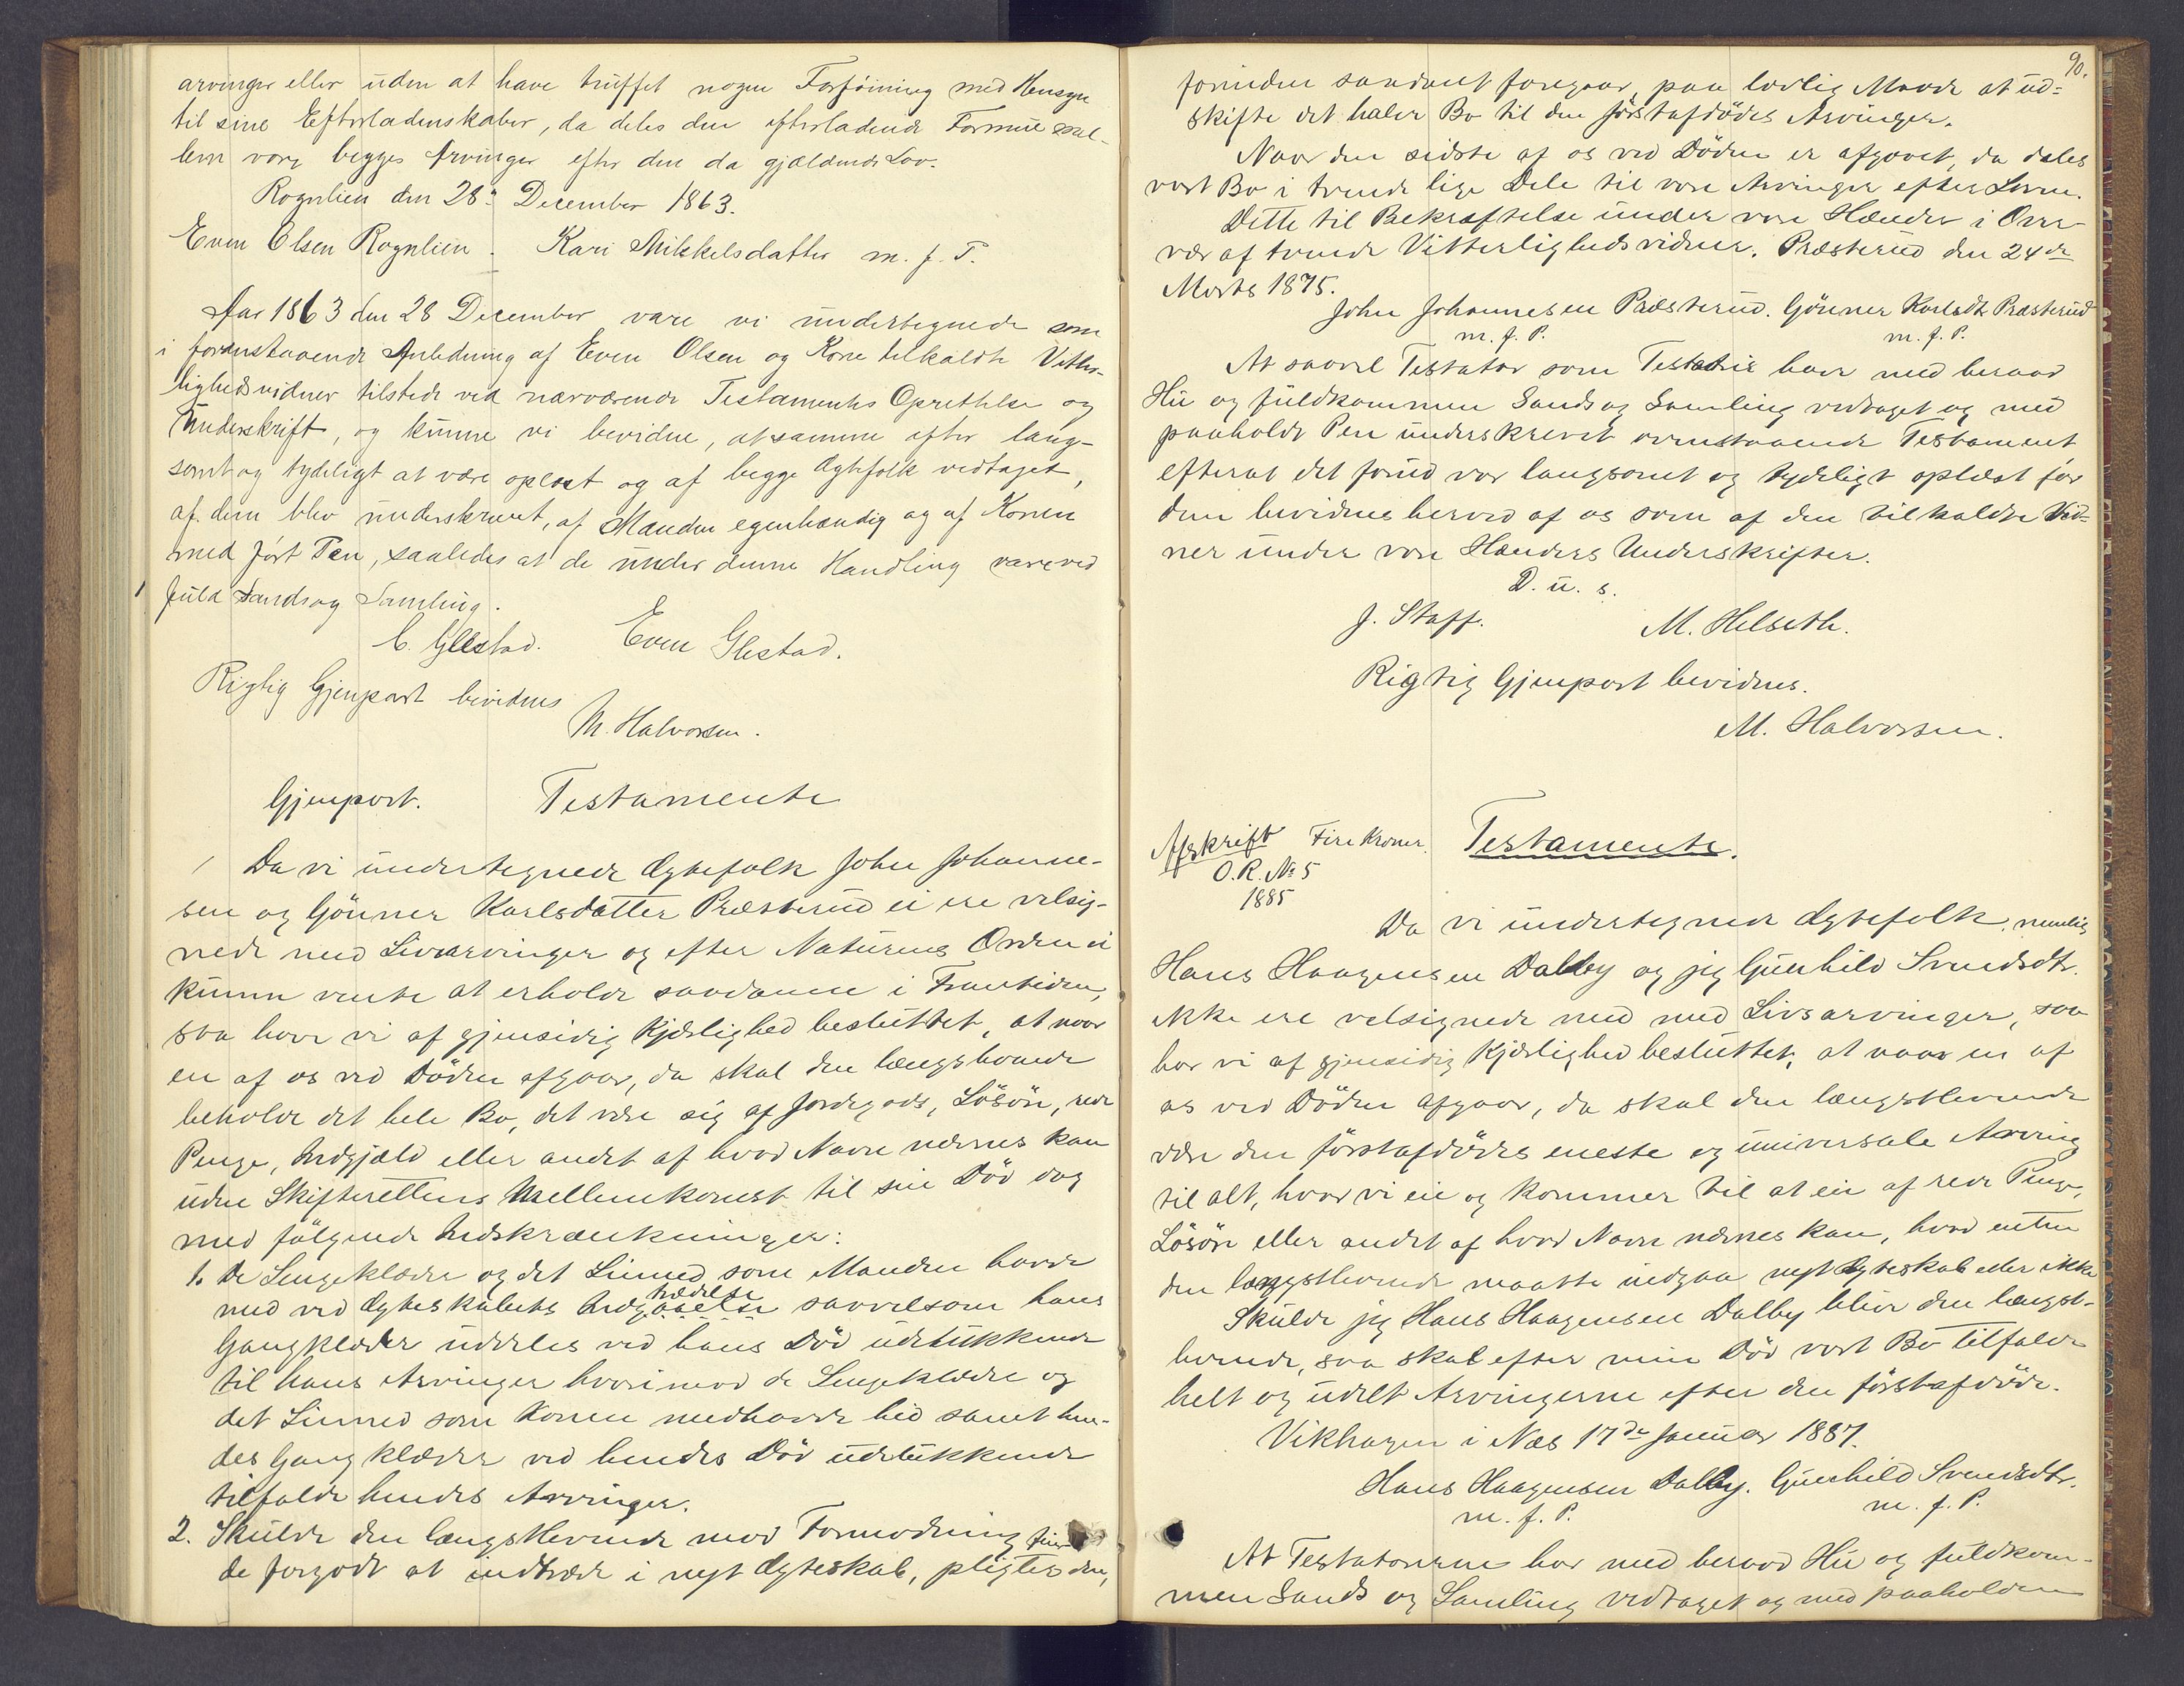 arvinger eller uden at have truffet nogen Forføining med Hensyn
til sine Efterladenskaber, da deles den efterladende Formue mel-
lem vore begges Arvinger efter den da gjældende Lov.
Rognlien den 28de December 1863.
Even Olsen Rognlien. Kari Mikkelsdatter m. f. P.
Aar 1863 den 28 December vare vi undertegnede som
i foranstaaende Anledning af Even Olsen og Kone tilkaldte Vitter-
lighedsvidner tilstede ved nærværende Testaments Oprettelse og
Underskrift, og kunne vi bevidne, at samme efter lang-
somt og tydeligt at være oplæst og af begge Ægtefolk vedtaget,
af dem blev underskrevet, af Manden egenhændig og af Konen
med ført Pen, saaledes at de under denne Handling vare ved
fuld Sands og Samling.
C. Glestad. Even Glestad.
Rigtig Gjenpart bevidnes
M. Halvorsen.
Gjenpart. Testamente
Da vi undertegnede Ægtefolk John Johanne-
sen og Gönner Karlsdatter Præsterud ei ere velsig-
nede med Livsarvinger og efter Naturens Orden ei
kunne vente at erholde saadanne i Fremtiden,
saa have vi af gjensidig Kjærlighed besluttet, at naar
en af os ved Döden afgaar, da skal den længstlevende
beholde det hele Bo, det være sig af Jordegods, Lösöre, rede
Penge, Indgjæld eller andet af hvad Navn nævnes kan
uden Skifterettens Mellemkomst til sin Död dog
med fölgende Indskrænkninger:
1. De Sengeklæder og det Linned som Manden havde
med ved Ægteskabets Indgaaelse saavelsom hans
trædelse
Gangklæder uddeles ved hans Död udelukkende
til hans Arvinger hvorimod de Sengeklæder og
det Linned som Konen medhavde hid samt hen-
des Gangklæder ved hendes Död udelukkende
tilfalde hendes Arvinger.
2. Skulde den længstlevende mod Formodning fin-
de forgodt at indtræde i nyt Ægteskab, pligter den,
90.
forinden saadant foregaar, paa lovlig Maade at ud-
skifte det halve Bo til den förstafdödes Arvinger.
Naar den sidste af os ved Döden er afgaaet, da deles
vort Bo i tvende lige Dele til vore Arvinger efter Loven.
Dette til Bekræftelse under vore Hænder i Over-
vær af tvende Vitterlighedsvidner. Præsterud den 24de
Marts 1875.
John Johannesen Præsterud. Gönner Karlsdt. Præsterud
m. f. P. m. f. P.
At saavel Testator som Testatrix have med beraad
Hu og fuldkommen Sands og Samling vedtaget og med
paaholdt Pen underskrevet ovenstaaende Testament,
efterat det forud var langsomt og tydeligt oplæst for
dem bevidnes herved af os som af dem tilkaldte Vid-
ner under vore Hænders Underskrifter.
D. u. s.
J. Staff. M. Helseth.
Rigtig Gjenpart bevidnes.
M. Halvorsen.
Afskrift Fire Kroner. Testamente.
O. R. No 5
1885
Da vi undertegnede Ægtefolk, nemlig
Hans Haagensen Dalby og jeg Gunhild Svendsdtr.
ikke ere velsignede med med Livsarvinger, saa
har vi af gjensidig Kjærlighed besluttet, at naar en af
os ved Döden afgaar, da skal den længstlevende
være den förstafdödes eneste og universale Arving
til alt, hvad vi eie og kommer til at eie af rede Penge,
Lösöre eller andet af hvad Navn nævnes kan, hvad enten
den længstlevende maatte indgaa nyt Ægteskab eller ikke
Skulde jeg Hans Haagensen Dalby blive den længst-
levende, saa skal efter min Död vort Bo tilfalde
helt og udelt Arvingerne efter den förstafdöde.
Vikhagen i Næs 17de Januar 1887.
Hans Haagensen Dalby. Gunhild Svendsdtr.
m. f. P. m. f. P.
At Testatorerne har med beraad Hu og fuldkom-
men Sands og Samling vedtaget og med paaholden